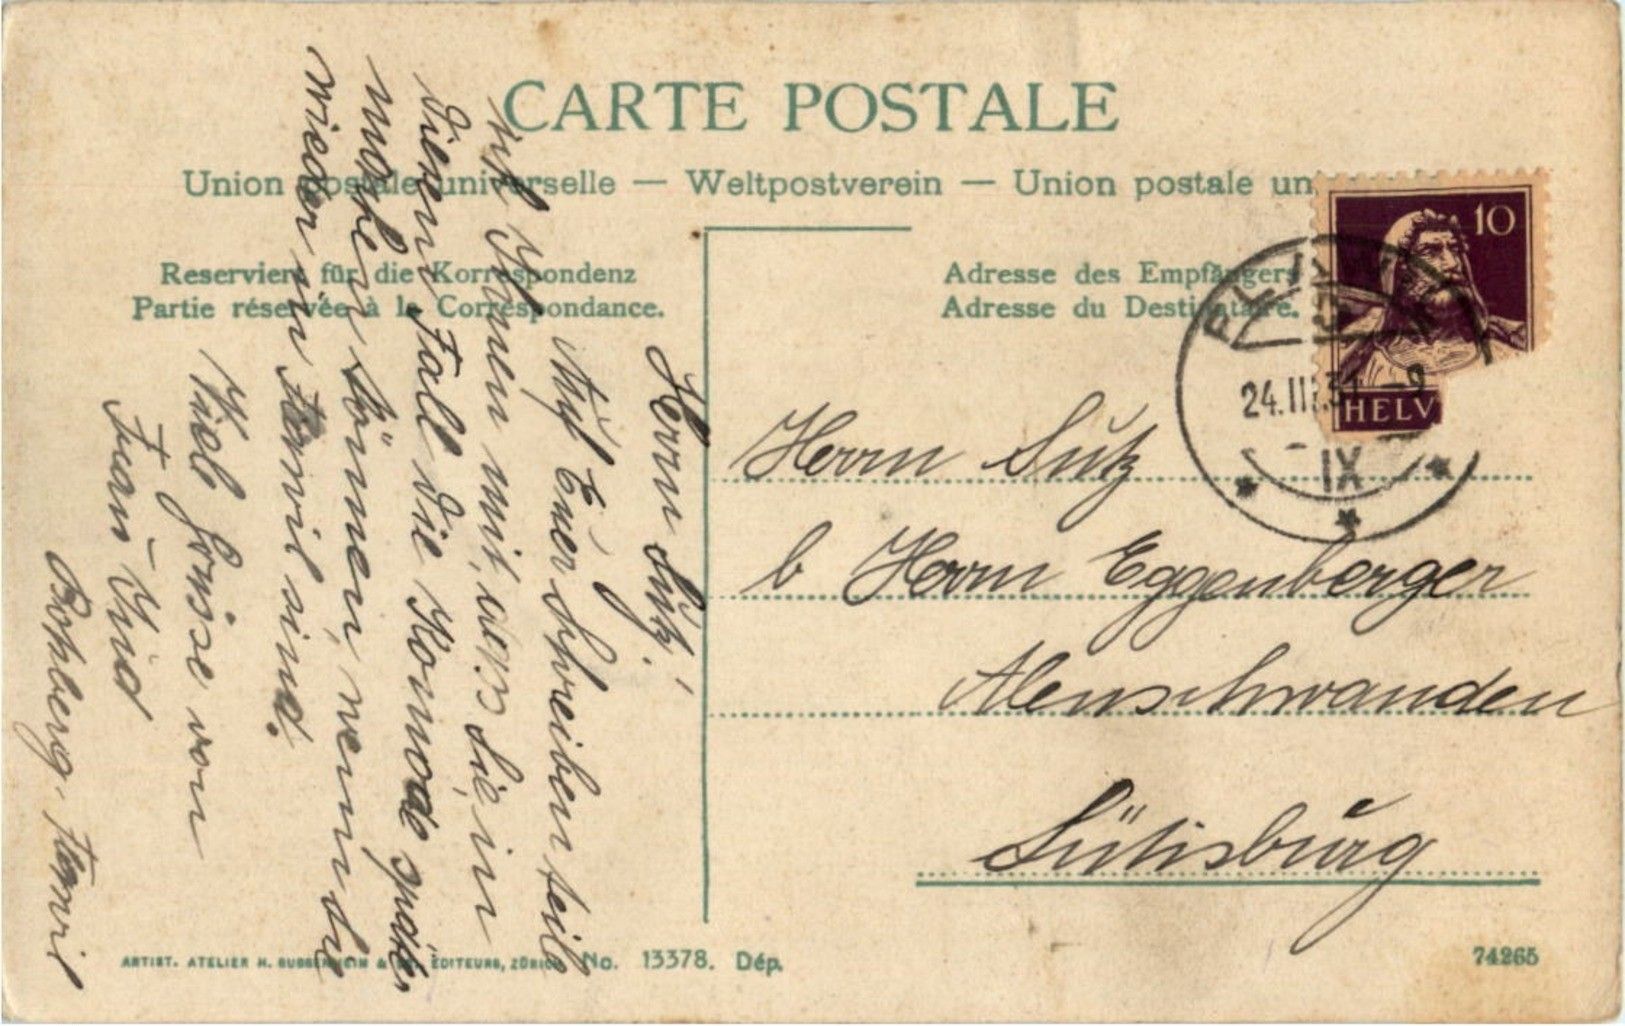 CARTE POSTALE
Union postale universelle — Weltpostverein — Union postale un
Reserviert für die Korrespondenz
Partie réservée à la Correspondance.
Adresse des Empfängers
Adresse du Destinataire.
10
HELV
24.III.31.-9
IX
Herrn Sutz
b Herrn Eggenberger
Altenschwanden
Lütisburg
Herrn Sutz!
Auf Euer Schreiben teile
ich Ihnen mit, dass Sie in
diesem Fall die Komode später
machen können, wenn Sie
wieder in Flawil sind.
Viele Grüsse von
Frau
Botsberg, Flawil
ARTIST. ATELIER H. GUGGENHEIM & Co., EDITEURS, ZÜRICH. No. 13378. Dép.
74265